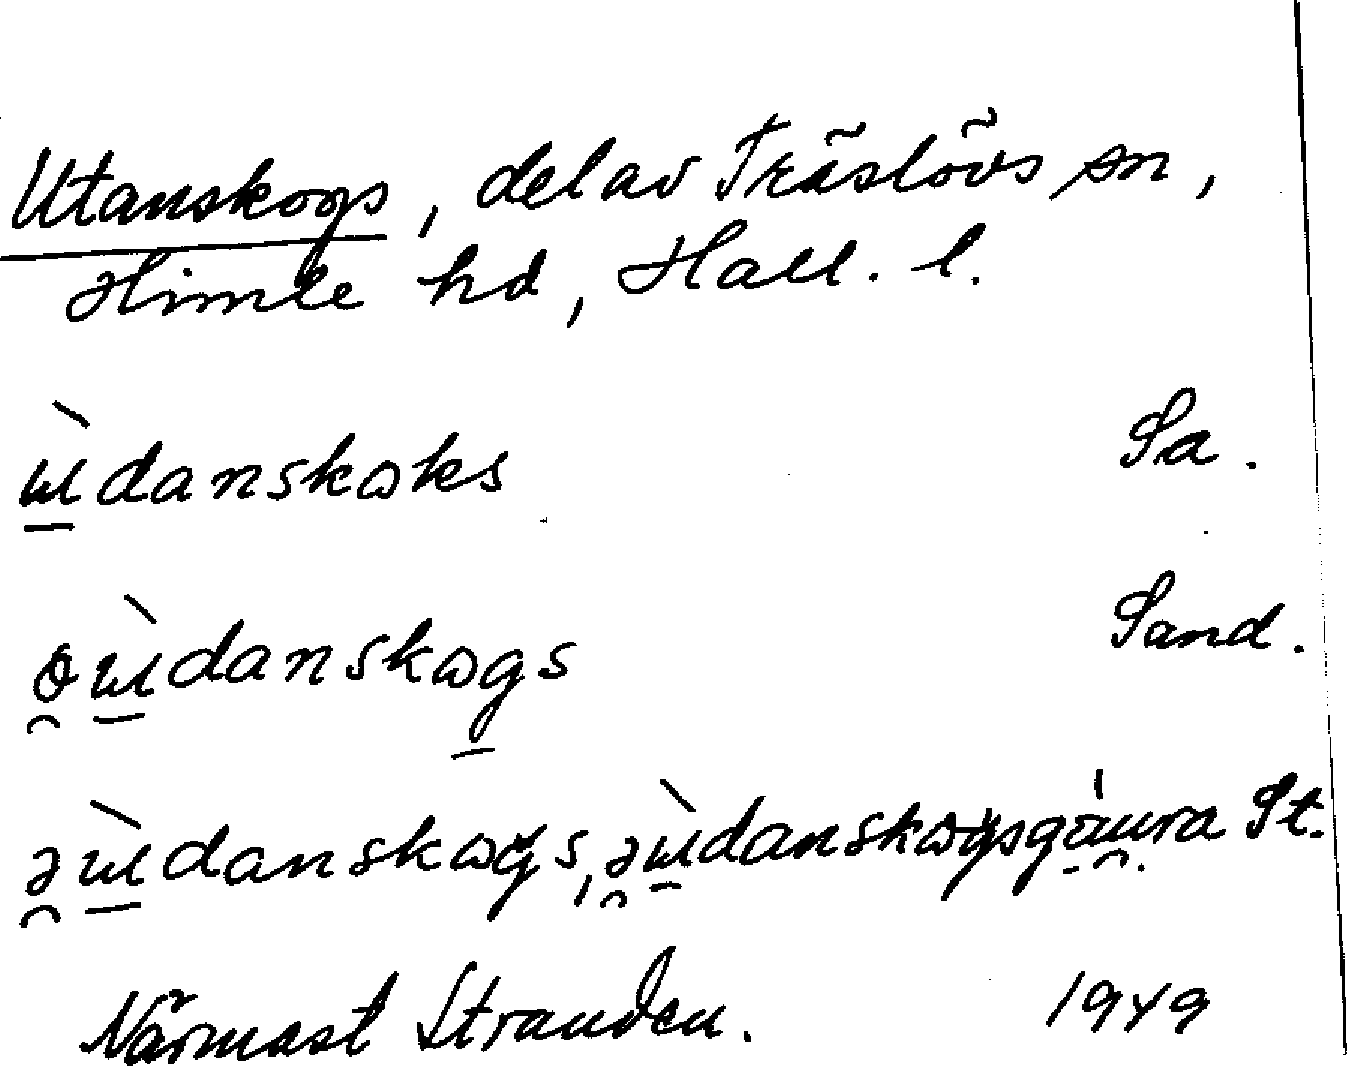 Utanskogs, del av Träslövs sn,
Himle hd, Hall. l.
ɯ̱̀danskωks Sa.
ɵ̯ɯ̱̀danskωg̱s Sand.
ə̯ɯ̱̀danskωɣs, ə̯ɯ̱̀danskωɣsgáu̯ra St.
Närmast Stranden. 1949